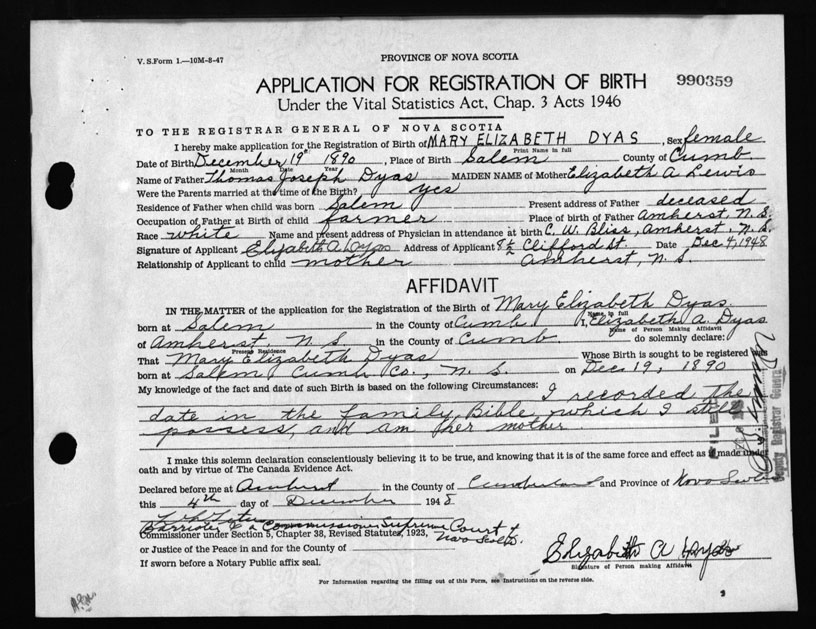 V. S. Form 1.—10M-8-47
PROVINCE OF NOVA SCOTIA
APPLICATION FOR REGISTRATION OF BIRTH
990359
Under the Vital Statistics Act, Chap. 3 Acts 1946
TO THE REGISTRAR GENERAL OF NOVA SCOTIA
I hereby make application for the Registration of Birth of MARY ELIZABETH DYAS, Sex female
Print Name in full
Date of Birth December 19 1890, Place of Birth Salem County of Cumb.
Month Date Year
Name of Father Thomas Joseph Dyas MAIDEN NAME of Mother Elizabeth A Lewis
Were the Parents married at the time of the Birth? yes
Residence of Father when child was born Salem Present address of Father deceased
Occupation of Father at Birth of child farmer Place of birth of Father Amherst, N. S.
Race white Name and present address of Physician in attendance at birth C. W. Bliss, Amherst, N. S.
Signature of Applicant Elizabeth A Dyas Address of Applicant 8½ Clifford St. Date Dec 4, 1948
Relationship of Applicant to child mother Amherst, N. S.
AFFIDAVIT
IN THE MATTER of the application for the Registration of the Birth of Mary Elizabeth Dyas.
Name in full
born at Salem in the County of Cumb. I, Elizabeth A. Dyas
Name of Person Making Affidavit
of Amherst, N. S. in the County of Cumb. do solemnly declare:
Present Residence
That Mary Elizabeth Dyas Whose Birth is sought to be registered was
born at Salem Cumb Co., N. S. on Dec 19, 1890
My knowledge of the fact and date of such Birth is based on the following Circumstances: I recorded the
date in the family Bible, which I still
possess, and am her mother
I make this solemn declaration conscientiously believing it to be true, and knowing that it is of the same force and effect as if made under
oath and by virtue of The Canada Evidence Act.
Declared before me at Amherst in the County of Cumberland and Province of Nova Scotia
this 4th day of December 1948
Barrister & a Commissioner Supreme Court of
Commissioner under Section 5, Chapter 38, Revised Statutes, 1923, Nova Scotia.
or Justice of the Peace in and for the County of
If sworn before a Notary Public affix seal.
Elizabeth A Dyas
Signature of Person making Affidavit
For Information regarding the filling out of this Form, see Instructions on the reverse side.
FILED
Deputy Registrar General